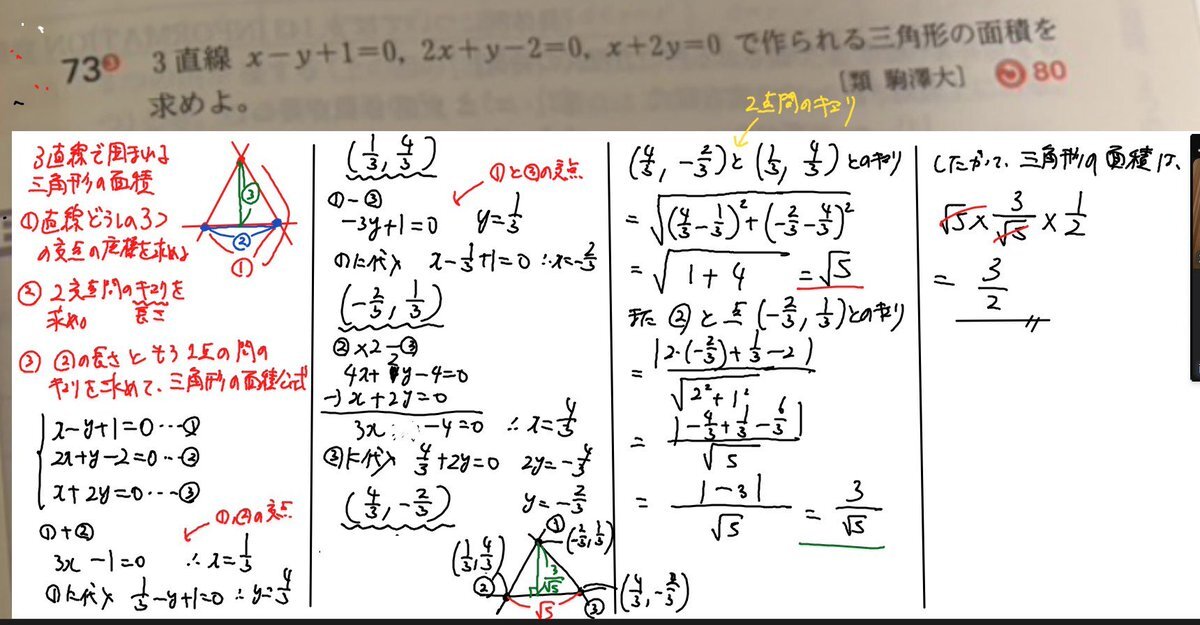 73 3 3直線 x-y+1=0, 2x+y-2=0, x+2y=0 で作られる三角形の面積を
求めよ。
[類 駒澤大] 80
3直線で囲まれる
三角形の面積
①直線どうしの3つ
の交点の座標を求める
②2交点間のキョリを
長さ
求める
③ ②の長さともう1点の間の
キョリを求めて、三角形の面積公式
③
②
①
x-y+1=0…①
2x+y-2=0…②
x+2y=0…③
①+②
①,②の交点
3x-1=0 ∴x=1/3
①に代入 1/3-y+1=0 ∴y=4/3
(1/3, 4/3)
①-③
①と③の交点
-3y+1=0 y=1/3
①に代入 x-1/3+1=0 ∴x=-2/3
(-2/3, 1/3)
②×2-③
4x+2y-4=0
-) x+2y=0
3x -4=0 ∴x=4/3
③に代入 4/3+2y=0 2y=-4/3
y=-2/3
(4/3, -2/3)
① (-2/3, 1/3)
(1/3, 4/3)
②
3/√5
√5
③ (4/3, -2/3)
2点間のキョリ
(4/3, -2/3)と(1/3, 4/3)とのキョリ
=√((4/3-1/3)²+(-2/3-4/3)²)
=√(1+4) =√5
また②と点(-2/3, 1/3)とのキョリ
=|2・(-2/3)+1/3-2|/√(2²+1²)
=|-4/3+1/3-6/3|/√5
=|-3|/√5 =3/√5
したがって、三角形の面積は、
√5×3/√5×1/2
=3/2